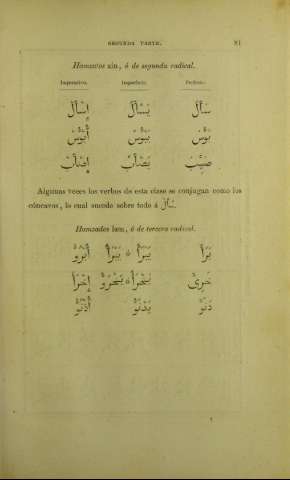 SEGUNDA PARTE. 81
Hamzados ain, ó de segunda radical.
Imperativo. Imperfecto. Perfecto.
إِسْأَلْ يَسْأَلُ سَأَلَ
أُبْؤُسْ يَبْؤُسُ بَؤُسَ
إِصْأَبْ يَصْأَبُ صَئِبَ
Algunas veces los verbos de esta clase se conjugan como los
cóncavos, lo cual sucede sobre todo á سأل.
Hamzados lam, ó de tercera radical.
أُبْرُؤْ يَبْرَأُ * يَبْرُؤُ بَرَأَ
إِخْرَأْ يَخْرَأُ خَرِئَ
أُدْنُؤْ يَدْنُؤُ دَنُؤَ